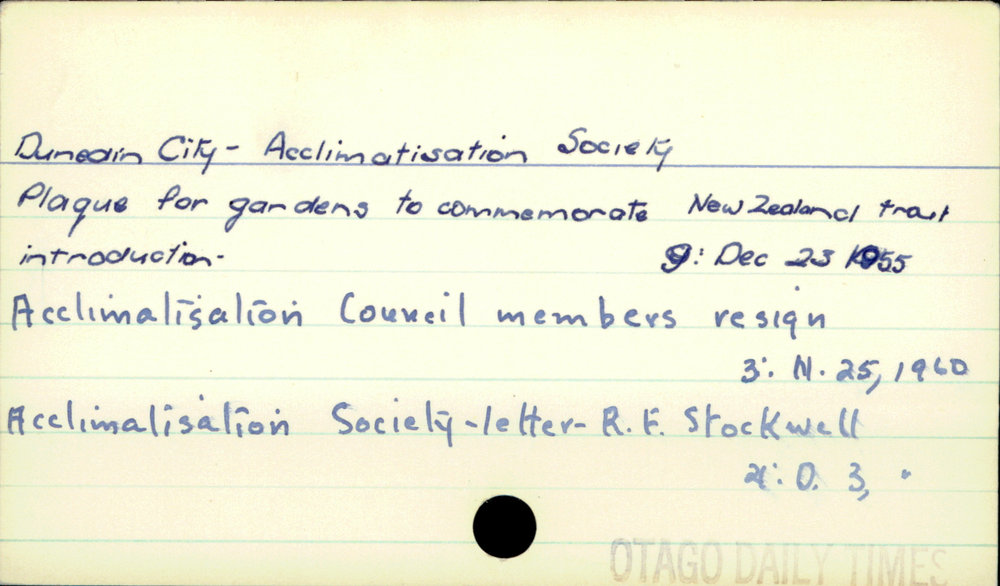 Dunedin City - Acclimatisation Society
Plaque for gardens to commemorate New Zealand trout
introduction. 9: Dec 23 1955
Acclimatisation Council members resign
3: N. 25, 1960
Acclimatisation Society - letter - R. F. Stockwell
: O. 3, "
OTAGO DAILY TIMES